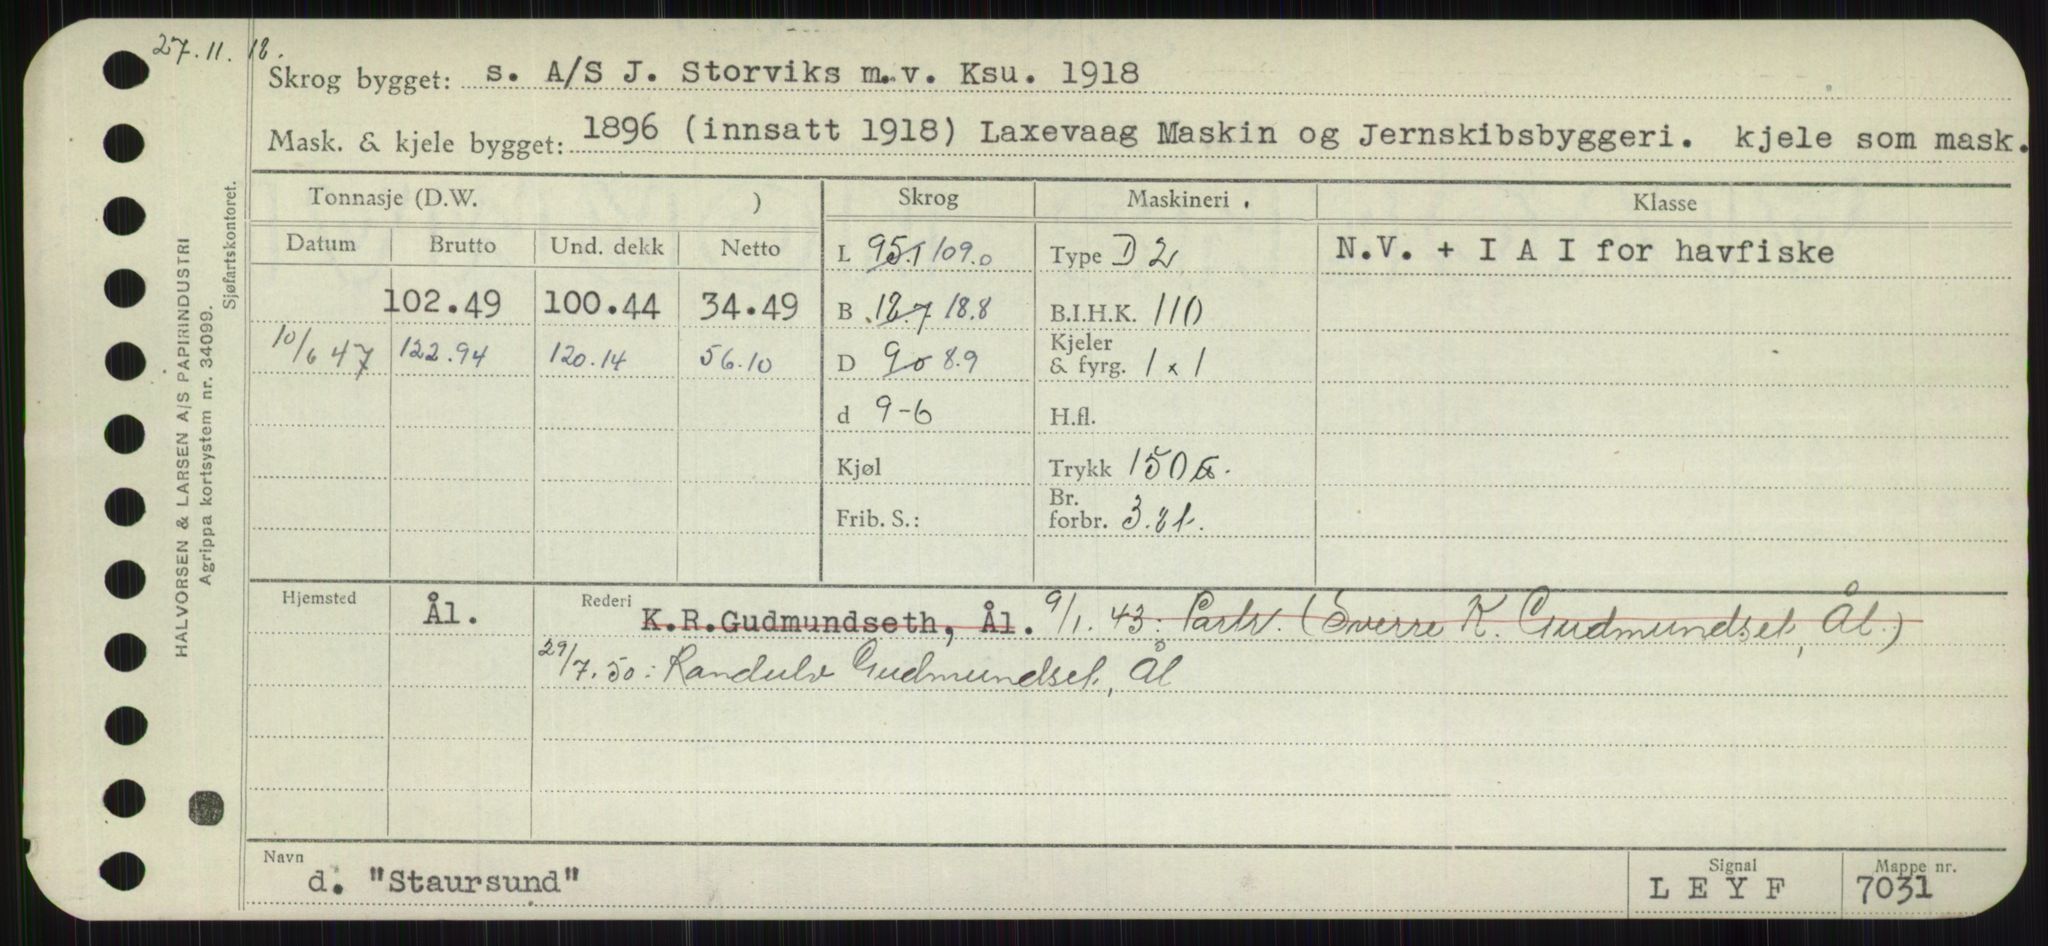 27.11.18.
Skrog bygget: s. A/S J. Storviks m.v. Ksu. 1918
Mask. & kjele bygget: 1896 (innsatt 1918) Laxevaag Maskin og Jernskibsbyggeri. kjele som mask.
Tonnasje (D.W. ) Skrog Maskineri Klasse
Datum Brutto Und. dekk Netto L 95.1 109.0 Type D 2 N.V. + I A I for havfiske
102.49 100.44 34.49 B 18.7 18.8 B.I.H.K. 110
10/6 47 122.94 120.14 56.10 D 9.0 8.9 Kjeler & fyrg. 1 x 1
d 9-6 H.fl.
Kjøl Trykk 150
Frib. S.: Br. forbr. 3.8 t.
Hjemsted Ål. Rederi K.R.Gudmundseth, Ål. 9/1.43: Partr. (Sverre K. Gudmundset, Ål.)
29/7.50: Randulv Gudmundset, Ål
Navn d. "Staursund" Signal L E Y F Mappe nr. 7031
HALVORSEN & LARSEN A/S PAPIRINDUSTRI
Agrippa kortsystem nr. 34099.
Sjøfartskontoret.